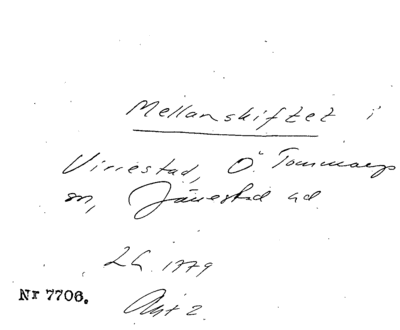 Mellanskiftet i
Virrestad, Ö. Tommarps
sn, Järrestad hd
LG. 1779
Nr 7706.
Akt 2.